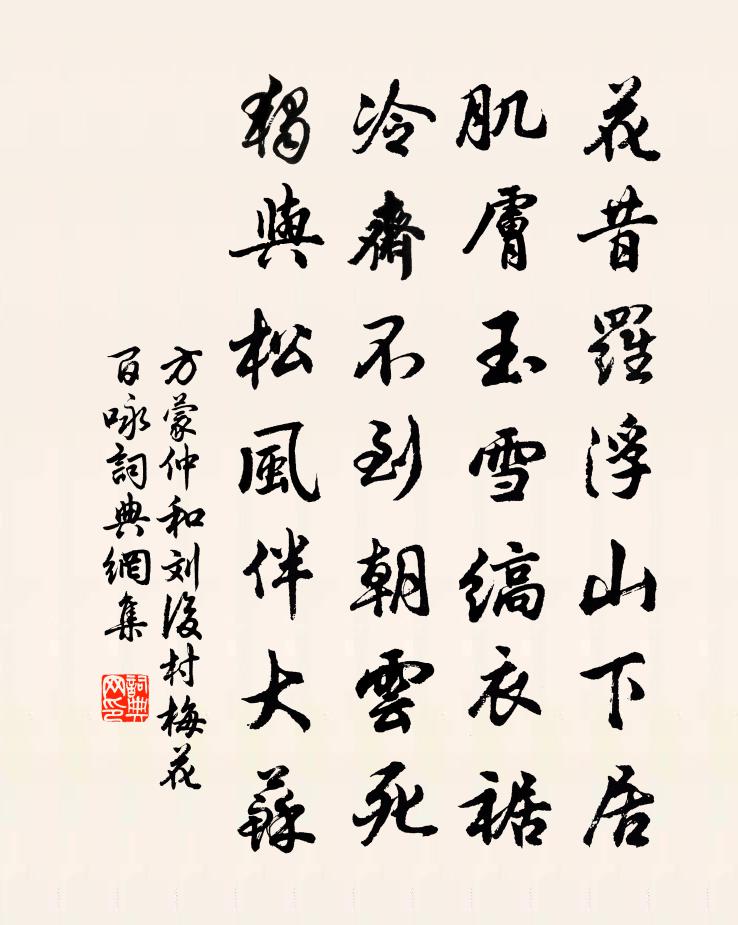 花昔羅浮山下居
肌膚玉雪縞衣裾
冷齋不到朝雲死
獨與松風伴大蘇
方蒙仲和刘後村梅花
百咏詞典網集
詞典网印